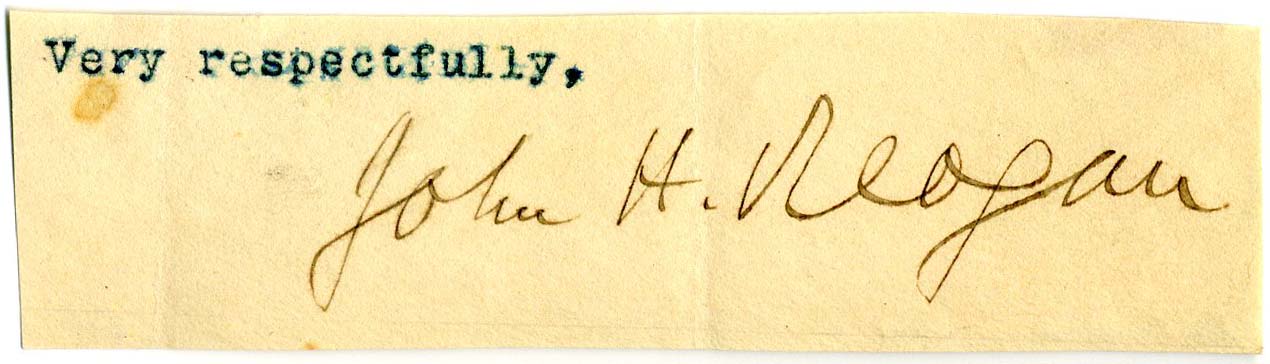 Very respectfully,
John H. Reagan